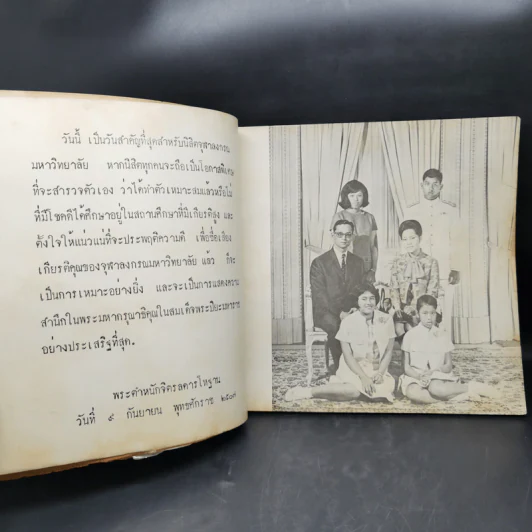 วันนี้ เป็นวันสำคัญที่สุดสำหรับนิสิตจุฬาลงกรณ
มหาวิทยาลัย หากนิสิตทุกคนจะถือเป็นโอกาสพิเศษ
ที่จะสำรวจตัวเอง ว่าได้ทำตัวเหมาะสมแล้วหรือไม่
ที่มีโชคดีได้ศึกษาอยู่ในสถานศึกษาที่มีเกียรติสูง และ
ตั้งใจให้แน่วแน่ที่จะประพฤติความดี เพื่อชื่อเสียง
เกียรติคุณของจุฬาลงกรณมหาวิทยาลัย แล้ว ก็จะ
เป็นการเหมาะอย่างยิ่ง และจะเป็นการแสดงความ
สำนึกในพระมหากรุณาธิคุณในสมเด็จพระปิยะมหาราช
อย่างประเสริฐที่สุด.
พระตำหนักจิตรลดารโหฐาน
วันที่ ๙ กันยายน พุทธศักราช